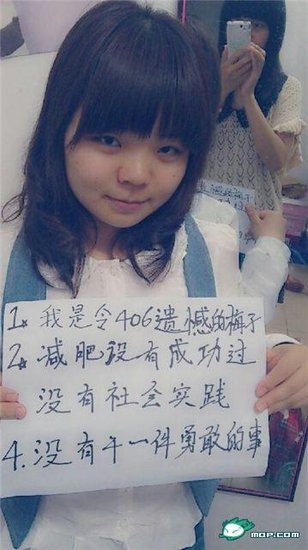 1. 我是令406遗憾的梅子
2. 减肥没有成功过
没有社会实践
4. 没有干一件勇敢的事
MOP.COM